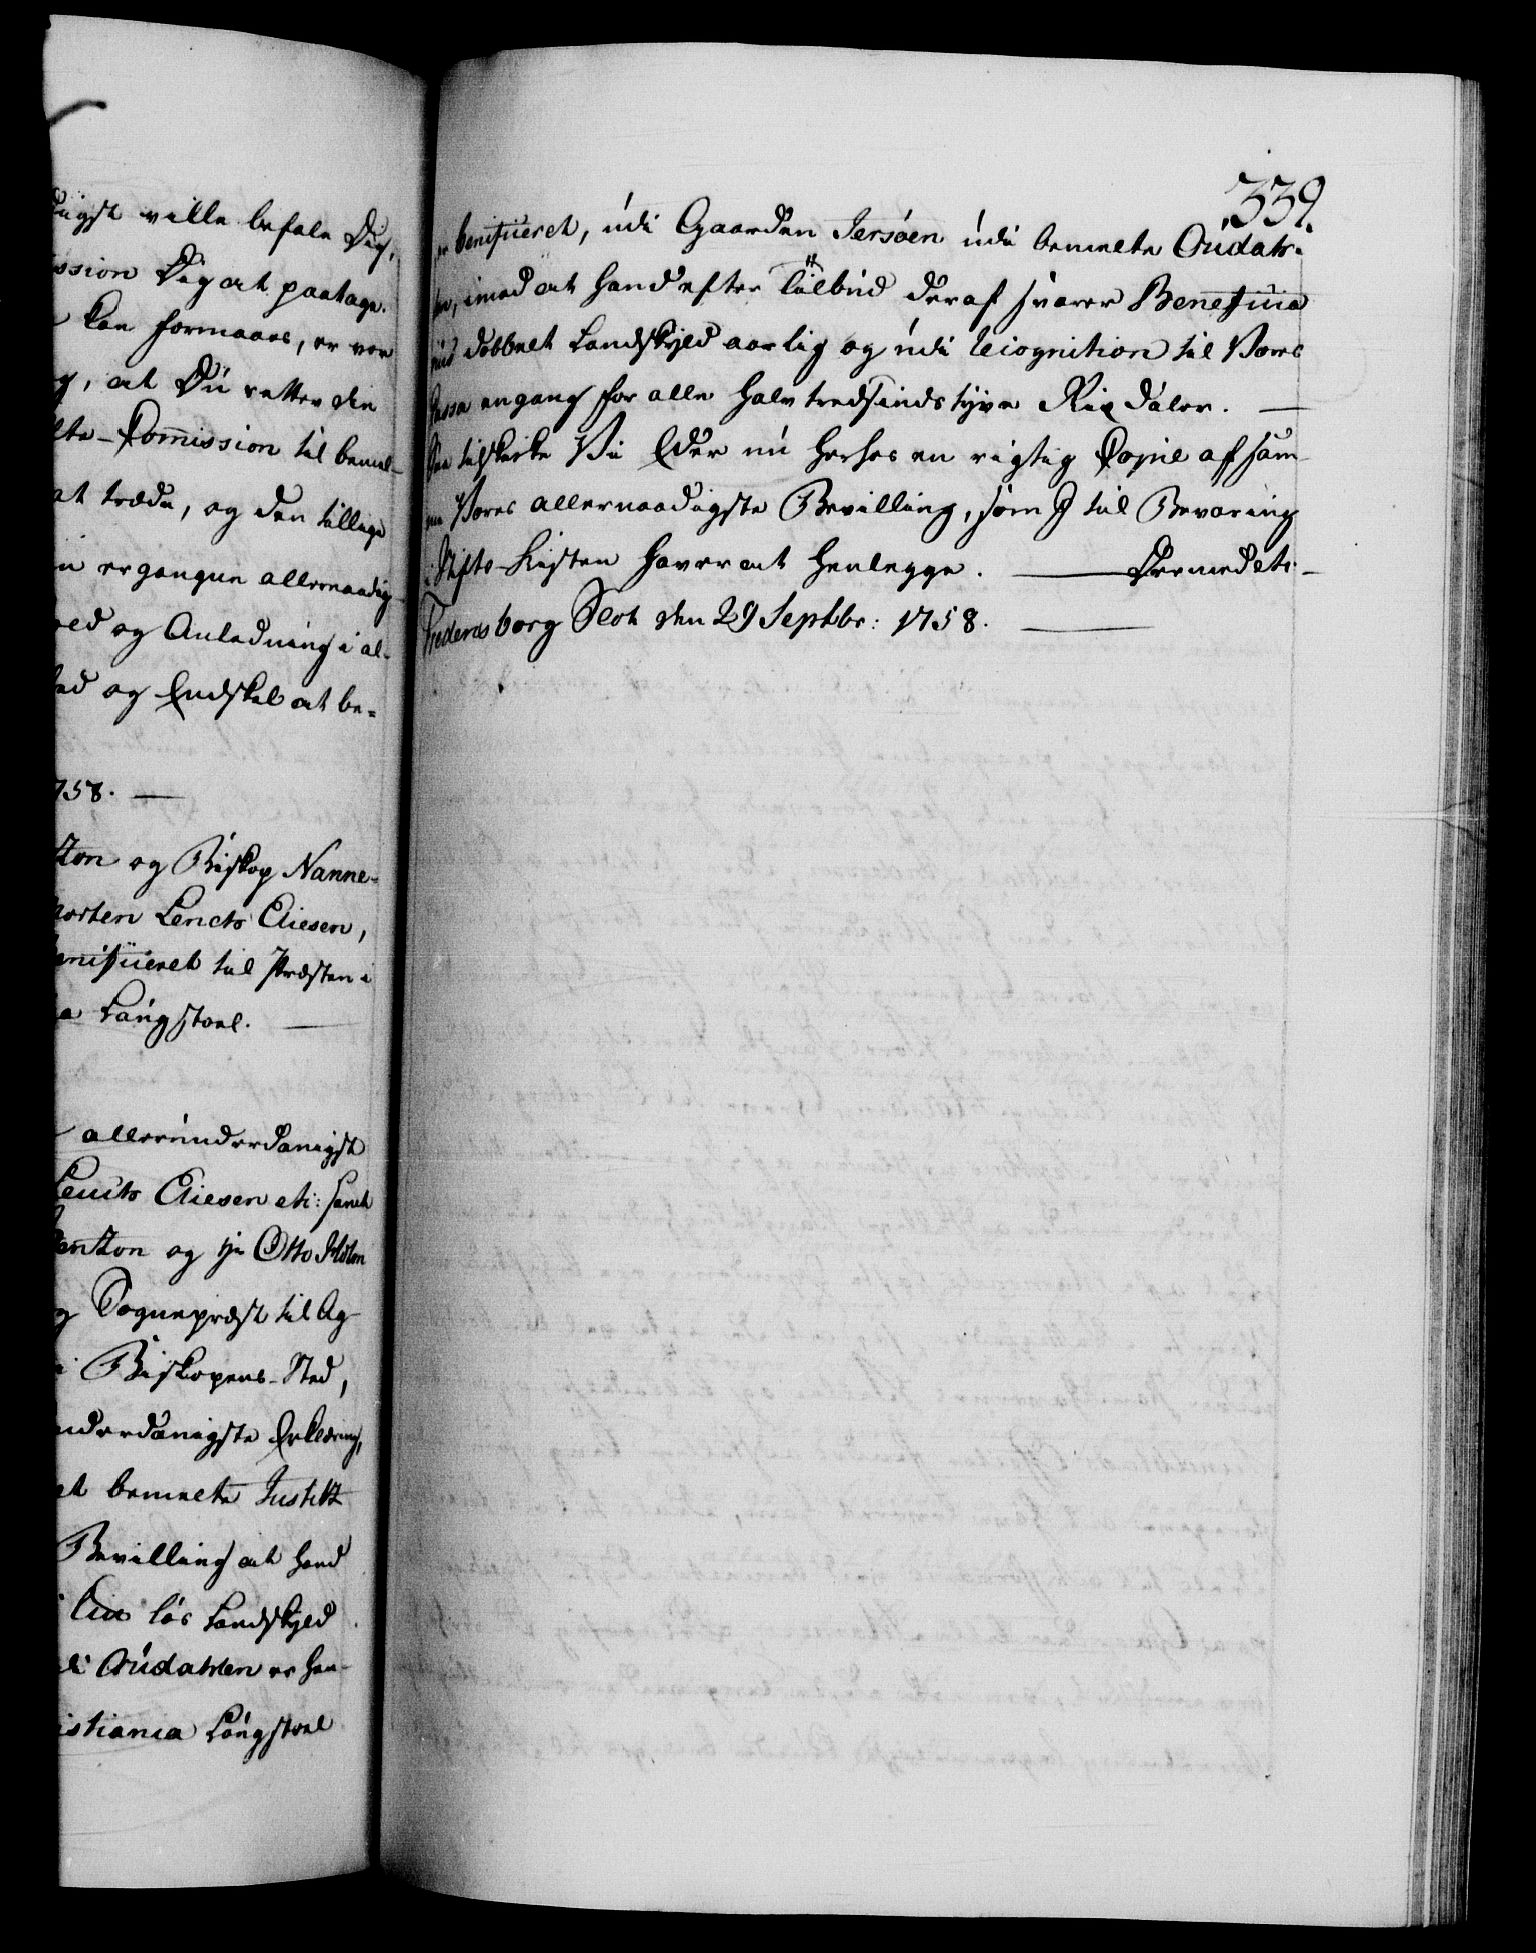 digst ville befale Dig,
ission Dig at paatage.
kan formaaes, er vor
g, at Du retter din
lte Commission til bemel-
at træde, og den tillige
n ergangne allernaadig-
ved og Anledning i al-
led og Endskal at be-
758.
tzon og Biskop Nanne-
orten Leuchs Eliesen,
eneficeret til Præsten i
a Laugstoel.
allerunderdanigst
Leuchs Eliesen etc: samt
entzon og hr Otto Holm
og Sognepræst til Ag-
i Biskopens Sted,
underdanigste Erklæring,
et bemelte Justitz
Bevilling at hand
løs Landskyld
di Oudahlen er hen-
istiania Laugstoel
339.
er beneficeret, udi Gaarden Jersøen udi bemelte Oudahs-
len, imod at hand efter Tilbud deraf svarer Beneficia
rius dobbelt Landskyld aarlig og udi Recognition til Vores
Cassa engang for alle halvtredsindstyve Rixdaler.
Saa tilskikke Vi Eder nu herhos en rigtig Copie af sam-
me Vores allernaadigste Bevilling, som I til Bevaring
i Stifts-Kisten haver at henlegge. Dermed etc.
Fredensborg Slot den 29 Septbr: 1758.